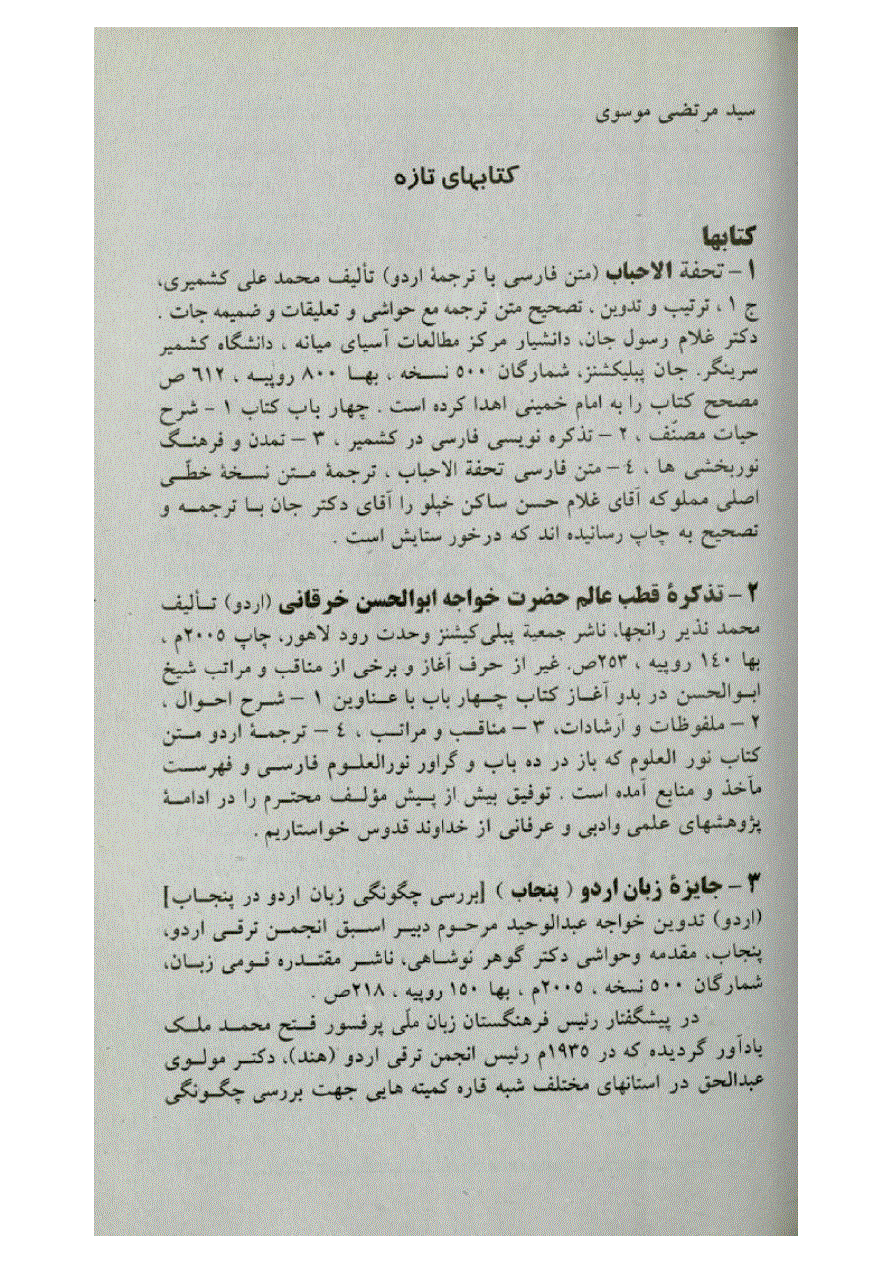 سید مرتضی موسوی
کتابهای تازه
کتابها
۱- تحفة الاحباب (متن فارسی با ترجمۀ اردو) تألیف محمد علی کشمیری،
ج ۱، ترتیب و تدوین ، تصحیح متن ترجمه مع حواشی و تعلیقات و ضمیمه جات .
دکتر غلام رسول جان، دانشیار مرکز مطالعات آسیای میانه ، دانشگاه کشمیر
سرینگر. جان پبلیکشنز، شمارگان ۵۰۰ نسخه ، بها ۸۰۰ روپیه ، ٦١٢ ص
مصحح کتاب را به امام خمینی اهدا کرده است . چهار باب کتاب ۱- شرح
حیات مصنّف ، ۲- تذکره نویسی فارسی در کشمیر ، ۳- تمدن و فرهنگ
نوربخشی ها ، ٤- متن فارسی تحفة الاحباب ، ترجمۀ متن نسخۀ خطّی
اصلی مملوکه آقای غلام حسن ساکن خپلو را آقای دکتر جان با ترجمه و
تصحیح به چاپ رسانیده اند که درخور ستایش است .
۲- تذکرۀ قطب عالم حضرت خواجه ابوالحسن خرقانی (اردو) تألیف
محمد نذیر رانجها، ناشر جمعیة پبلی‌کیشنز وحدت رود لاهور، چاپ ۲۰۰۵م ،
بها ١٤٠ روپیه ، ۲۵۳ص. غیر از حرف آغاز و برخی از مناقب و مراتب شیخ
ابوالحسن در بدو آغاز کتاب چهار باب با عناوین ۱- شرح احوال ،
۲- ملفوظات و ارشادات، ۳- مناقب و مراتب ، ٤- ترجمۀ اردو متن
کتاب نور العلوم که باز در ده باب و گراور نورالعلوم فارسی و فهرست
مآخذ و منابع آمده است . توفیق بیش از پیش مؤلف محترم را در ادامۀ
پژوهشهای علمی وادبی و عرفانی از خداوند قدوس خواستاریم .
۳- جایزۀ زبان اردو ( پنجاب ) [بررسی چگونگی زبان اردو در پنجاب]
(اردو) تدوین خواجه عبدالوحید مرحوم دبیر اسبق انجمن ترقی اردو،
پنجاب، مقدمه وحواشی دکتر گوهر نوشاهی، ناشر مقتدره قومی زبان،
شمارگان ۵۰۰ نسخه ، ۲۰۰۵م ، بها ۱۵۰ روپیه ، ۲۱۸ص .
در پیشگفتار رئیس فرهنگستان زبان ملّی پرفسور فتح محمد ملک
یادآور گردیده که در ۱۹۳۵م رئیس انجمن ترقی اردو (هند)، دکتر مولوی
عبدالحق در استانهای مختلف شبه قاره کمیته هایی جهت بررسی چگونگی